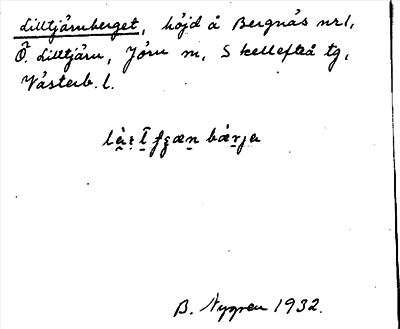 Lilltjärnberget, höjd å Bergnäs nr 1,
Ö. Lilltjärn, Jörn sn, Skellefteå tg,
Västerb. l.
B. Nygren 1932.